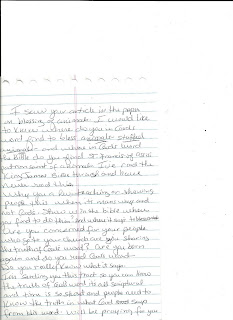 I saw your article in the paper
on blessing of animals. I would like
to know where do you in Gods
word find to bless animals stuffed
animals - and where in Gods word
the Bible do you find St. Francis of Assisi
patron saint of animals. I've read the
King James Bible through and have
never read this.
Why you a Rev teaching or showing
people this when its mans way and
not Gods. Show us in the bible where
you find to do this and where it says to bless
Are you concerned for your people
who go to your church are you sharing
the truth of Gods word? Are you born
again and do you read Gods word
do you really know what it says.
I'm sending you this that so you can know
the truth of Gods word to all scriptural
and time is so short and people need to
know the truth in what God says
from his word. Will be praying for you